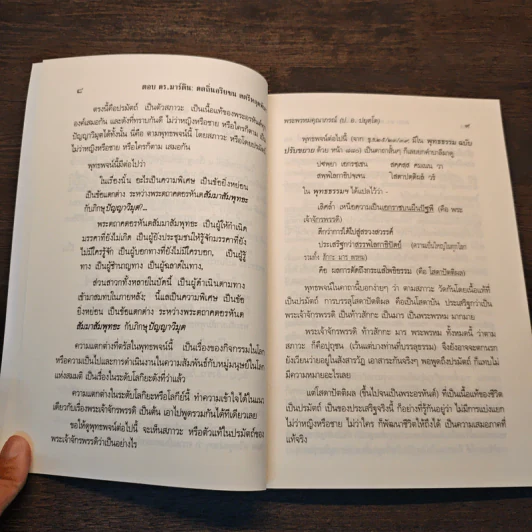 ๘
ตอบ ดร.มาร์ติน:
ตรงนี้คือปรมัตถ์ เป็นตัวสภาวะ เป็นเนื้อแท้ของพระอรหันต์ทุก
องค์เสมอกัน และดังที่ทราบกันดี ไม่ว่าหญิงหรือชาย หรือใครก็ตาม เป็น
ปัญญาวิมุตได้ทั้งนั้น นี่คือ ตามพุทธพจน์นี้ โดยสภาวะ หรือโดยปรมัตถ์
ไม่ว่าหญิงหรือชาย หรือใครก็ตาม เสมอกัน
พุทธพจน์นี้มีต่อไปว่า
ในเรื่องนั้น อะไรเป็นความพิเศษ เป็นข้อยิ่งหย่อน
เป็นข้อแตกต่าง ระหว่างพระตถาคตอรหันตสัมมาสัมพุทธะ
กับภิกษุปัญญาวิมุต?...
พระตถาคตอรหันตสัมมาสัมพุทธะ เป็นผู้ให้กำเนิด
มรรคาที่ยังไม่เกิด เป็นผู้ยังประชุมชนให้รู้จักมรรคาที่ยัง
ไม่มีใครรู้จัก เป็นผู้บอกทางที่ยังไม่มีใครบอก, เป็นผู้รู้
ทาง เป็นผู้ชำนาญทาง เป็นผู้ฉลาดในทาง,
ส่วนสาวกทั้งหลายในบัดนี้ เป็นผู้ดำเนินตามทาง
เข้ามาสมทบในภายหลัง; นี้แลเป็นความพิเศษ เป็นข้อ
ยิ่งหย่อน เป็นข้อแตกต่าง ระหว่างพระตถาคตอรหันต
สัมมาสัมพุทธะ กับภิกษุปัญญาวิมุต
ความแตกต่างที่ตรัสในพุทธพจน์นี้ เป็นเรื่องของกิจกรรมในโลก
หรือความเป็นไปและการดำเนินงานในความสัมพันธ์กับหมู่มนุษย์ในโลก
แห่งสมมติ เป็นเรื่องในระดับโลกิยะดังที่ว่าแล้ว
ความแตกต่างในระดับโลกิยะหรือโลกีย์นี้ ทำความเข้าใจได้ในแนว
เดียวกับเรื่องพระเจ้าจักรพรรดิ เป็นต้น เอาไปพูดรวมกันได้ทีเดียวเลย
ขอให้ดูพุทธพจน์ต่อไปนี้ จะเห็นสภาวะ หรือตัวแท้ในปรมัตถ์ของ
พระเจ้าจักรพรรดิว่าเป็นอย่างไร
พระพรหมคุณาภรณ์ (ป. อ. ปยุตฺโต)
๙
ปฐพฺยา เอกรชฺเชน สคฺคสฺส คมเนน วา
สพฺพโลกาธิปจฺเจน โสตาปตฺติผลํ วรํ
ใน พุทธธรรมฯ ได้แปลไว้ว่า –
เลิศล้ำ เหนือความเป็นเอกราชบนผืนปฐพี (คือ พระ
เจ้าจักรพรรดิ)
ดีกว่าการได้ไปสู่สรวงสวรรค์
ประเสริฐกว่าสรรพโลกาธิปัตย์ (ความเป็นใหญ่ในทุกโลก
รวมทั้ง สักกะ มาร พรหม)
คือ ผลการตัดถึงกระแสโพธิธรรม (คือ โสดาปัตติผล)
พุทธพจน์ในคาถานี้บอกง่ายๆ ว่า ตามสภาวะ วัดกันโดยเนื้อแท้ที่
เป็นปรมัตถ์ การบรรลุโสดาปัตติผล คือเป็นโสดาบัน ประเสริฐกว่าเป็น
พระเจ้าจักรพรรดิ เป็นท้าวสักกะ เป็นมาร เป็นพระพรหม มากมาย
พระเจ้าจักรพรรดิ ท้าวสักกะ มาร พระพรหม ทั้งหมดนี้ ว่าตาม
สภาวะ ก็คือปุถุชน (เว้นแต่บางท่านที่บรรลุธรรม)
แต่โสดาปัตติผล (ขึ้นไปจนเป็นพระอรหันต์) ที่เป็นเนื้อแท้ของชีวิต
เป็นปรมัตถ์ เป็นของประเสริฐจริงนี้ ก็อย่างที่รู้กันอยู่ว่า ไม่มีการแบ่งแยก
ไม่ว่าหญิงหรือชาย ไม่ว่าใคร ก็พัฒนาชีวิตให้ถึงได้ เป็นความเสมอภาคที่
แท้จริง